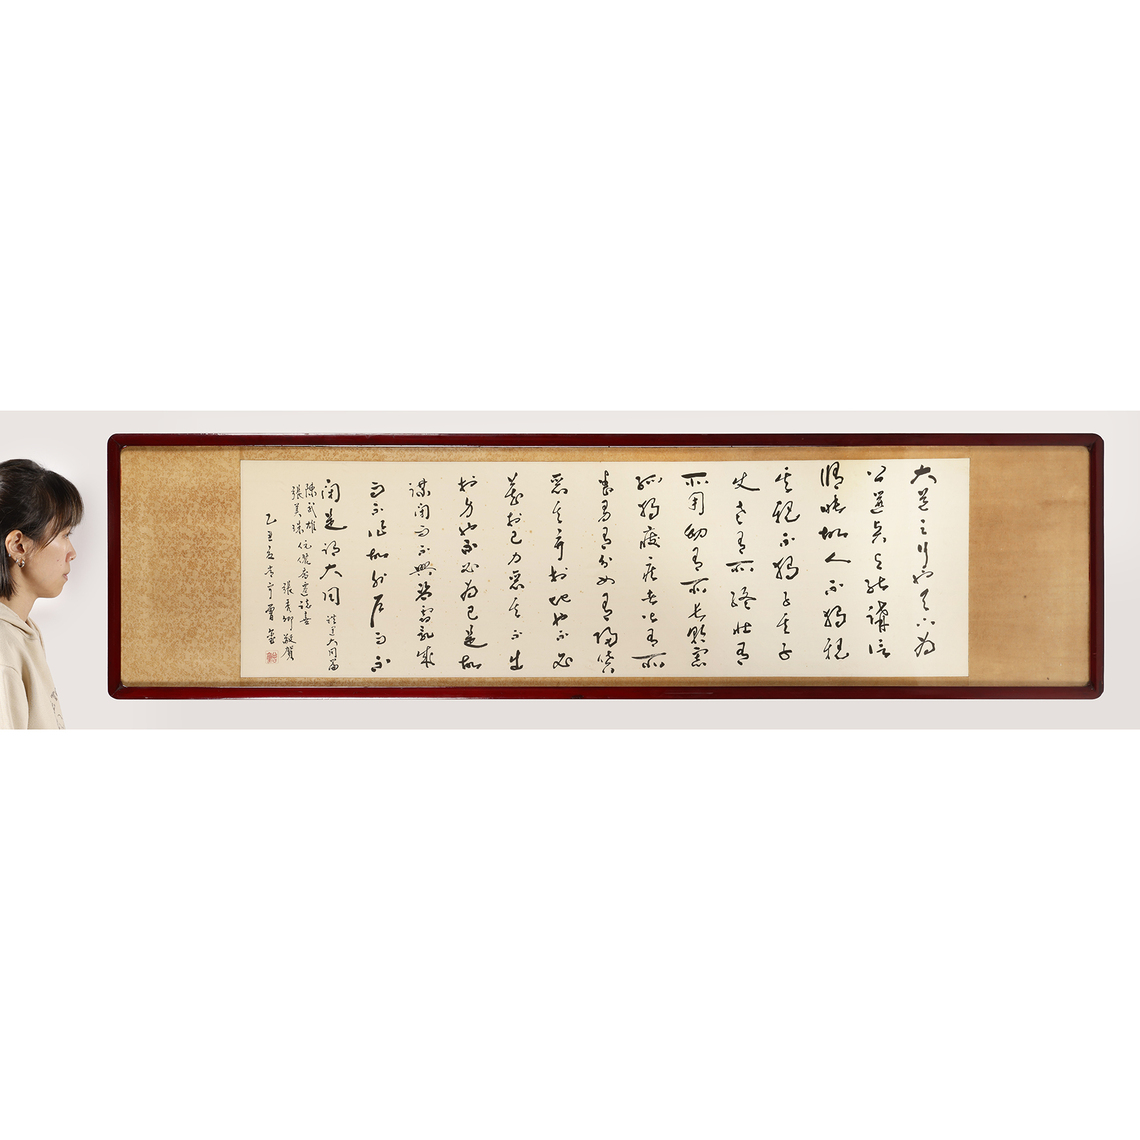 大道之行也天下為
公選賢與能講信
脩睦故人不獨親
其親不獨子其子
使老有所終壯有
所用幼有所長矜寡
孤獨廢疾者皆有所
養男有分女有歸貨
惡其棄於地也不必
藏於己力惡其不出
於身也不必為己是故
謀閉而不興盜竊亂賊
而不作故外戶而不
閉是謂大同 禮運大同篇
陳武雄
張美珠 伉儷喬遷誌喜
張秀卿敬賀
乙丑夏